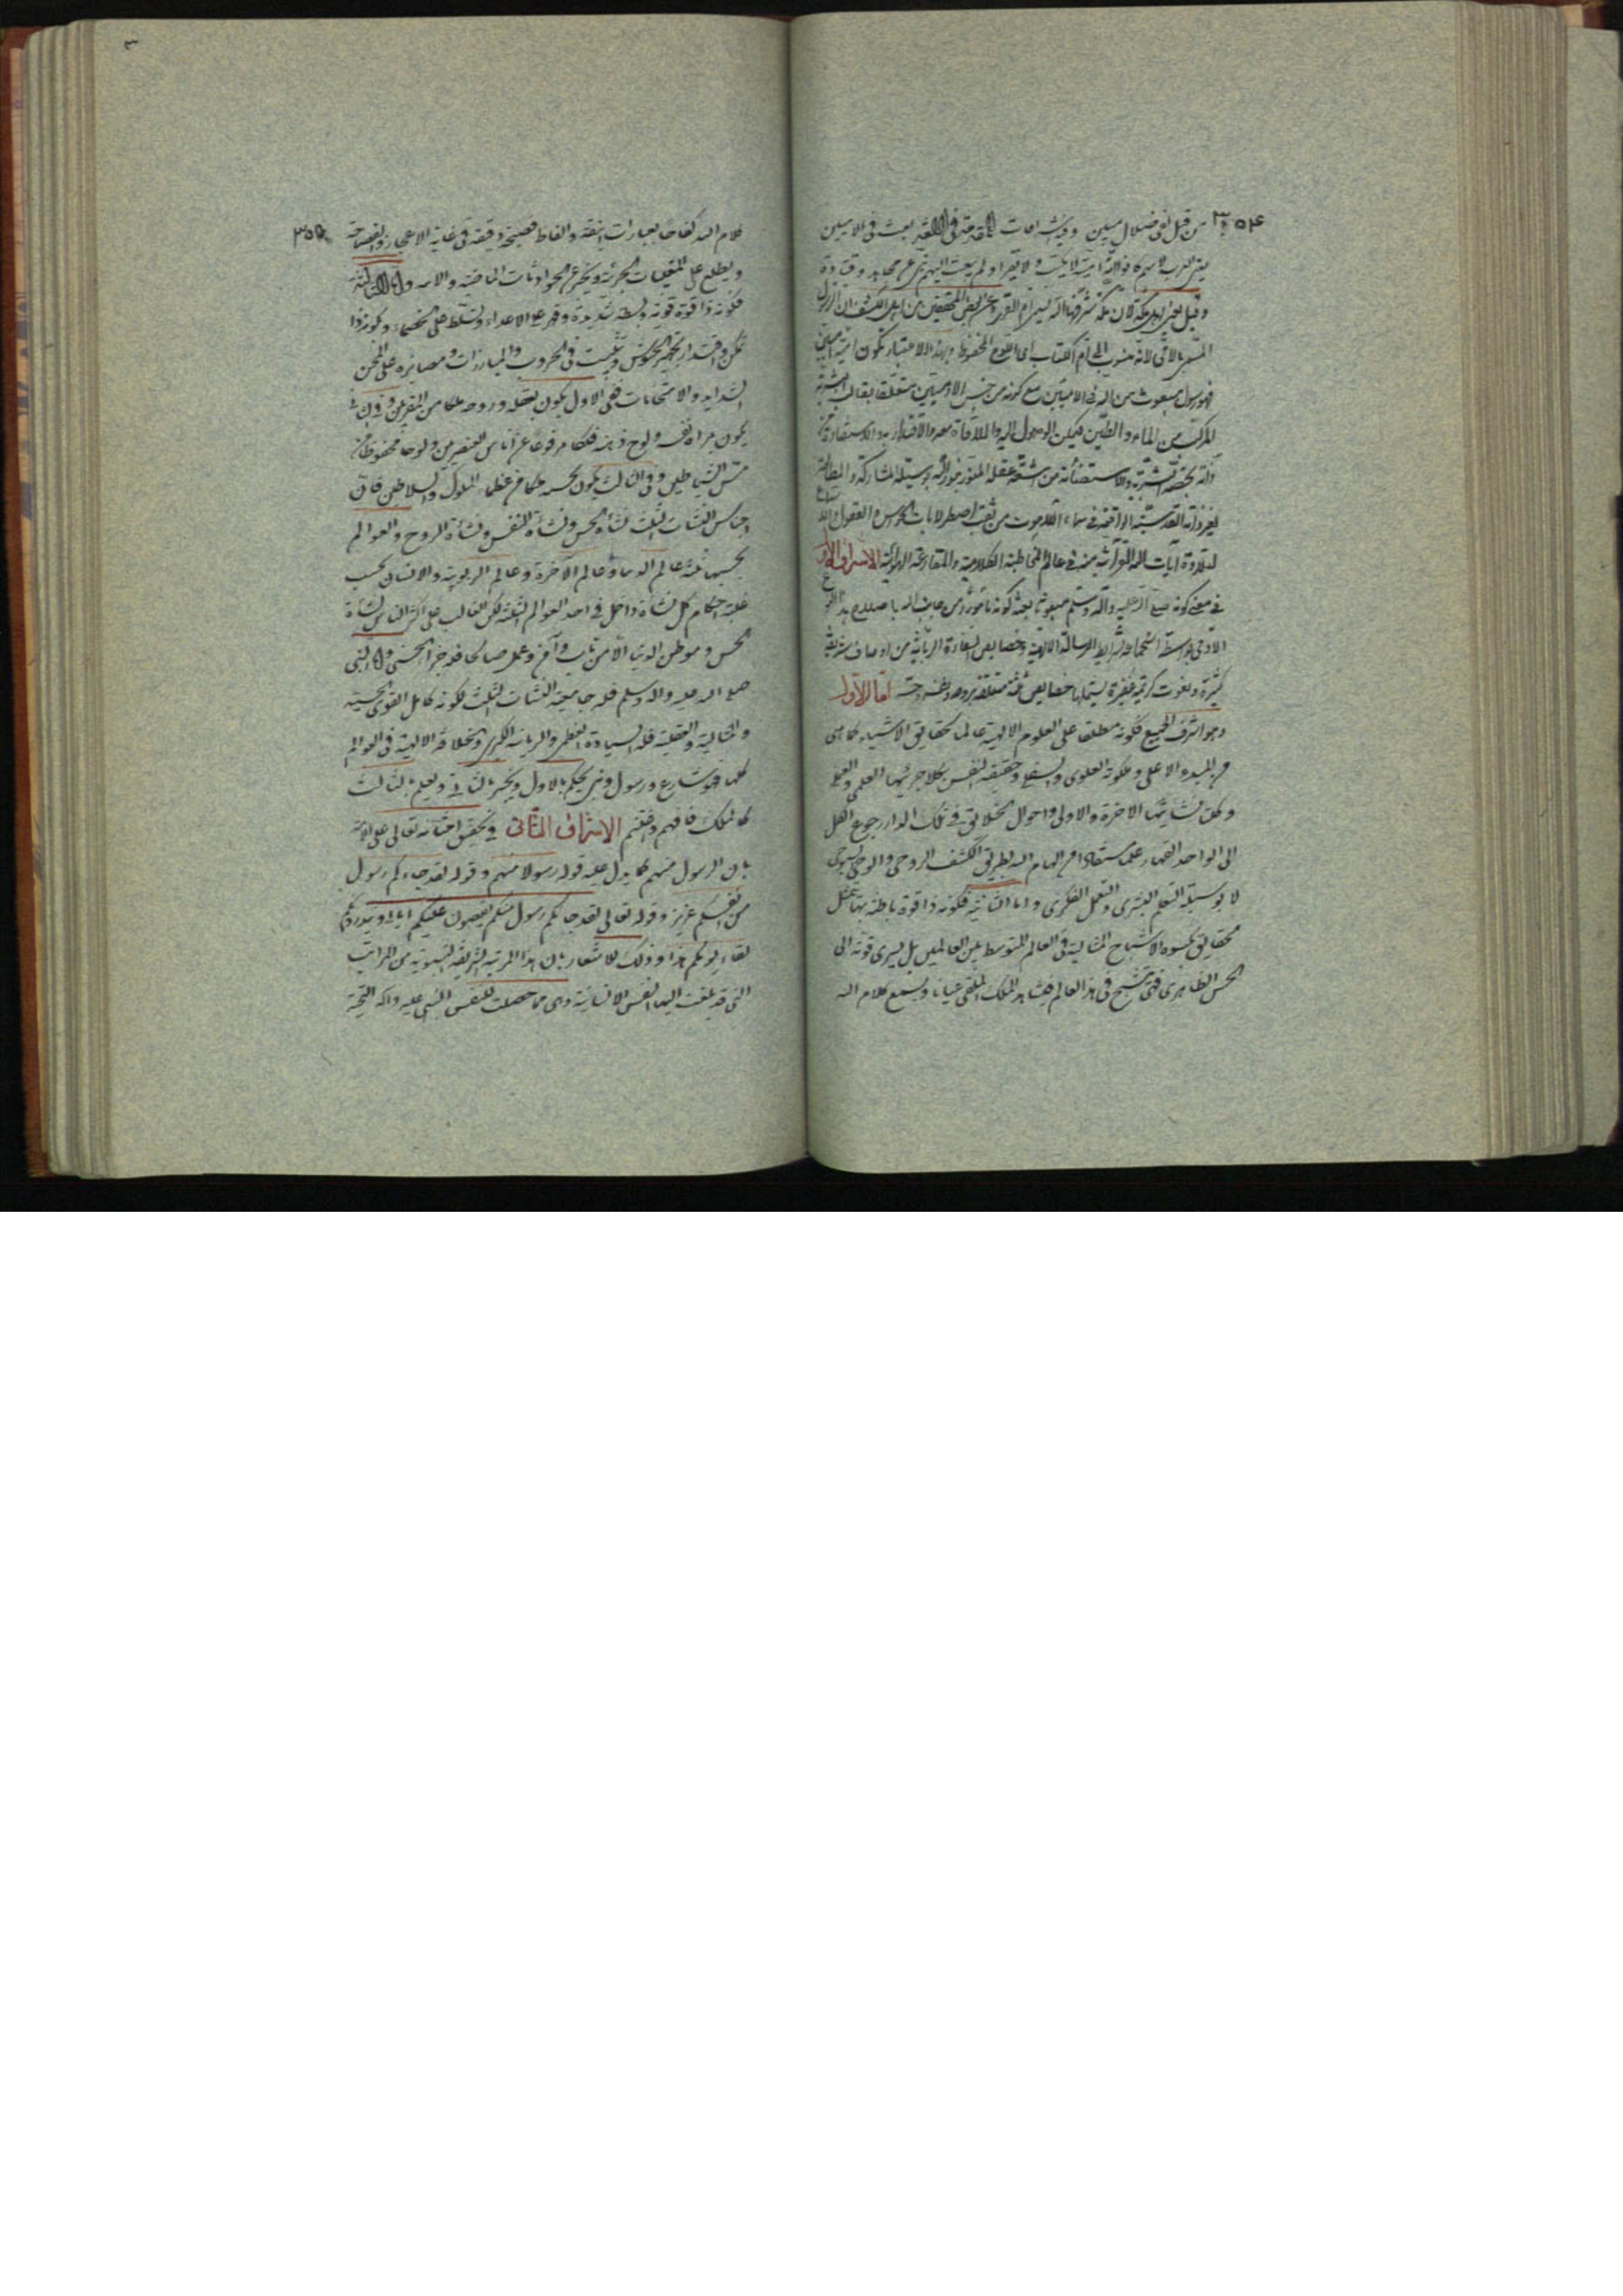 ٣٥٤
من قبل لفى ضلال مبين وفيه اشراقات المقدمة فى اللغة بعث فى الاميين
يعنى العرب لانهم كانوا امة امية لا يكتب ولا يقرأ ولم يبعث اليهم نبى عن مجاهد وقتادة
وقيل يعنى اهل مكة لان مكة شرفها الله يسمى ام القرى وعن بعض المحققين من اهل الكشف ان الرسول
المسمى بالامى لانه منسوب الى ام الكتاب اى اللوح المحفوظ وبهذا الاعتبار تكون امته اميين
فهو رسول مبعوث من الله فى الاميين مع كونه من جنس الادميين متعلقا بقالب البشرية
المركب من الماء والطين فيمكن الوصول اليه والملاقاة معه والاقتداء به والاستفادة من
ذاته بحصته البشرية والاستضائة من اشعة عقله المنور بنور الله بوسيلة المشاركة والمطالعة
لغرة ذاته القدسية الواقعة فى سماء اللاهوت من ثقب اصطرلابات الحواس والعقول والاستماع
لتلاوة آيات الله القرآنية منه فى عالم المخاطبة الكلامية والمقارعة الهوائية الاشراق الاول
فى معنى كونه صلى الله عليه وآله وسلم مبعوثا يعنى كونه مأمورا من جانب الله باصلاح هذا النوع
الآدمى بواسطة استجماعه لشرايط الرسالة الالهية وخصايص السفارة الربانية من اوصاف شريفة
كثيرة ونعوت كريمة غفيرة يشتملها خصايص ثلثة متعلقة بروحه ونفسه وحسه اما الاول
وهو اشرف الجميع فكونه مطلعا على العلوم الالهية عالما بحقايق الاشياء كما هى
من المبدء الاعلى وملكوته العلوى والسفلى وحقيقة النفس بكلا جزئيها العلمى والعملى
وكلتى نشأتيها الاخرة والاولى واحوال الخلايق فى تلك الدار ورجوع الكل
الى الواحد القهار علما مستفادا من الهام الله بطريق الكشف الروحى والوحى السبوحى
لا بوسيلة التعلم البشرى والتعمل الفكرى واما الثانية فكونه ذا قوة باطنة بها يتمثل
الحقايق بكسوة الاشباح المثالية فى العالم المتوسط بين العالمين بل يسرى قوته الى
الحس الظاهرى فتتشبح فى هذا العالم فيشاهد الملك الملقى عيانا ويسمع كلام الله
٣٥٥
كلام الله كفاحا بعبارات انيقة والفاظ فصيحة واقعة فى غاية الاعجاز والفصاحة
ويطلع على المغيبات الجزئية ويخبر عن الحوادث الماضية والآتية واما الثالثة
فكونه ذا قوة قوية وبسطة شديدة وقهر على الاعداء وتسلط على الخصماء وكونه ذا
تمكن واقتدار لتجهيز الجيوش وتثبت فى الحروب والمبارزات ومصابرة على المحن
الشدايد والامتحانات ففى الاول يكون بعقله وروحه ملكا من المقربين وفى الثانى
يكون مرآة نفسه ولوح ذهنه فلكا مرفوعا عن ادناس العنصريين ولوحا محفوظا من
مس الشياطين وفى الثالث يكون بحسه ملكا من عظماء الملوك والسلاطين فان
اجناس النشآت الثلث نشأة الحس ونشأة النفس ونشأة الروح والعوالم
بحسبها ثلثة عالم الدنيا وعالم الآخرة وعالم الربوبية والانسان بحسب
غلبة احكام كل نشأة داخل فى احد العوالم الثلثة لكن الغالب على اكثر الناس نشأة
الحس وموطن الدنيا الا من تاب وآمن وعمل صالحا فله جزاء الحسنى واما النبى
صلى الله عليه واله وسلم فله جامعية النشآت الثلث لكونه كامل القوى الحسية
والمثالية والعقلية فله السيادة العظمى والرياسة الكبرى والخلافة الالهية فى العوالم
كلها فهو شارع ورسول ونبى يحكم بالاول ويخبر بالثانى ويعلم بالثالث
كالملك فافهم واغتنم الاشراق الثانى فى تحقيق امتنانه تعالى على الامة
بان الرسول منهم كما يدل عليه قوله رسولا منهم وقوله لقد جاءكم رسول
من انفسكم عزيز وقوله تعالى لقد جائكم رسول منكم يقصون عليكم اياتى وينذرونكم
لقاء يومكم هذا وذلك للاشعار بان هذا المرتبة الشريفة النبوية من المراتب
التى قد بلغت اليها النفس الانسانية وهى مما حصلت للنفس النبى عليه واله التحية